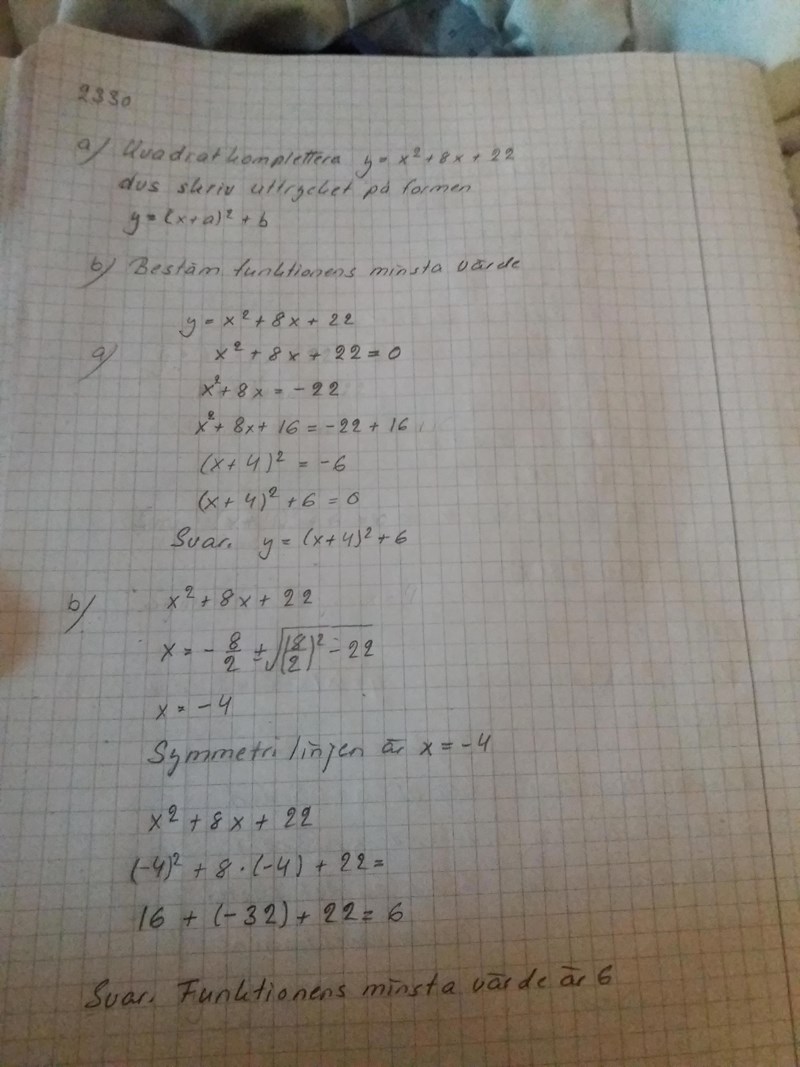 2330
a) Kvadratkomplettera y = x² + 8x + 22
dvs skriv uttrycket på formen
y = (x+a)² + b
b) Bestäm funktionens minsta värde
y = x² + 8x + 22
a) x² + 8x + 22 = 0
x² + 8x = -22
x² + 8x + 16 = -22 + 16
(x + 4)² = -6
(x + 4)² + 6 = 0
Svar. y = (x+4)² + 6
b) x² + 8x + 22
x = - 8/2 ± √(8/2)² - 22
x = -4
Symmetri linjen är x = -4
x² + 8x + 22
(-4)² + 8 · (-4) + 22 =
16 + (-32) + 22 = 6
Svar. Funktionens minsta värde är 6